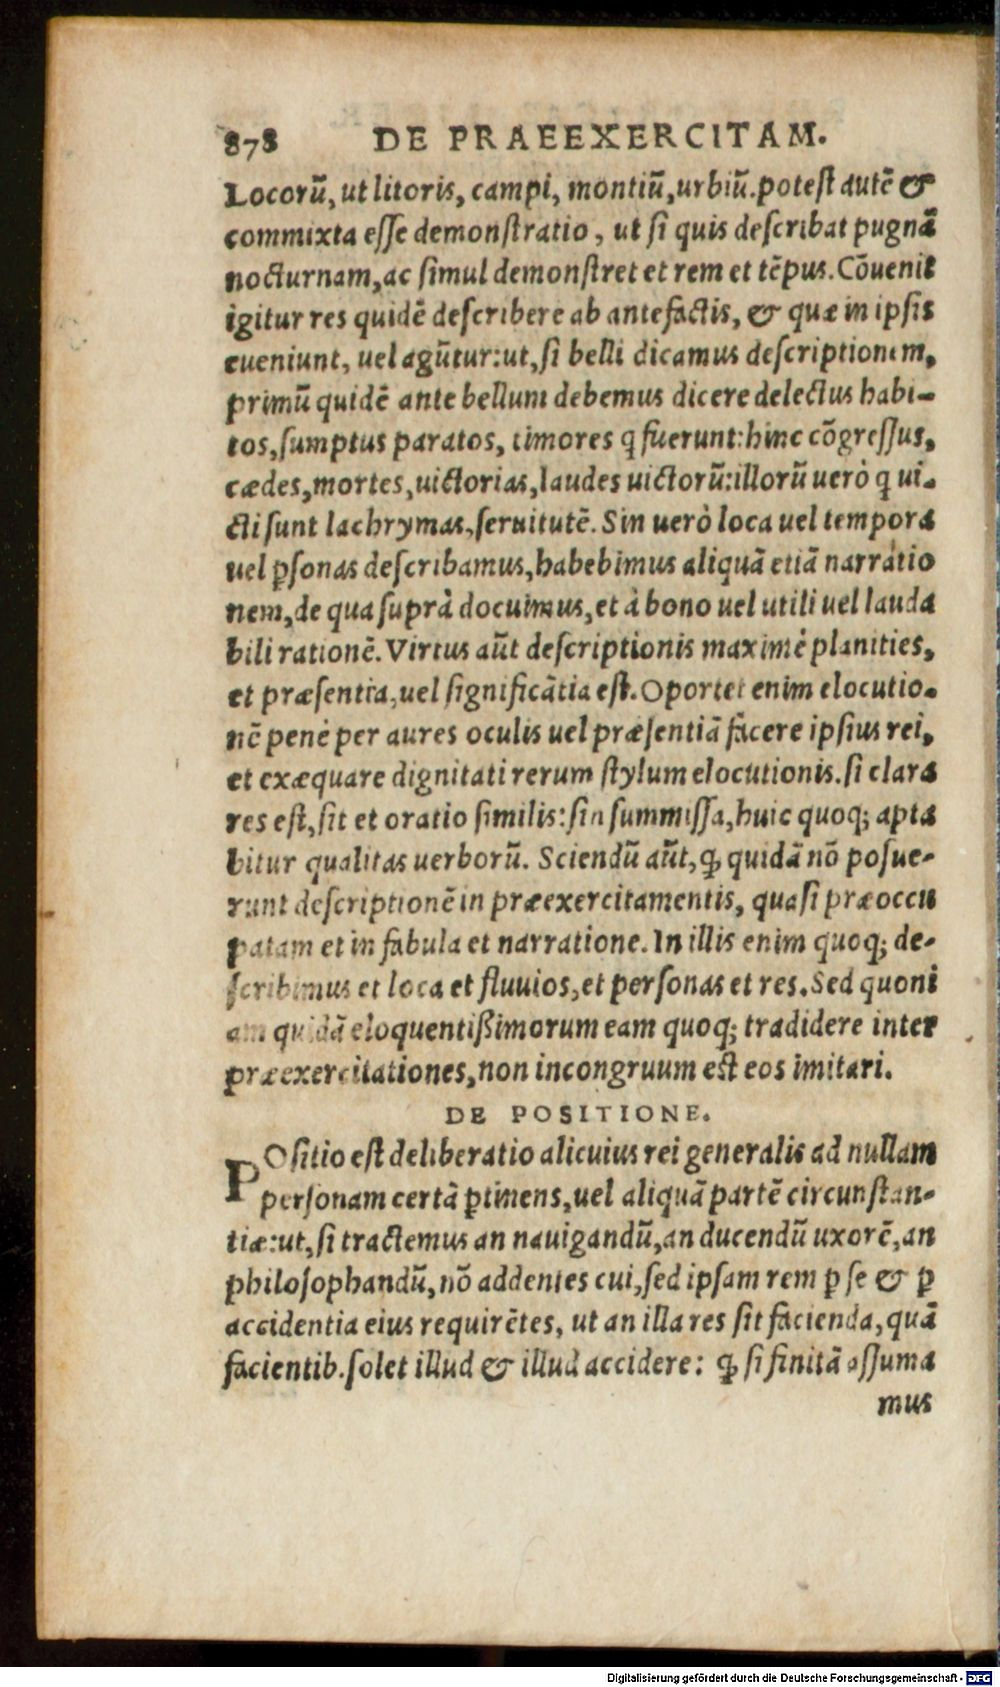 878 DE PRAEEXERCITAM.
Locorũ, ut litoris, campi, montiũ, urbiũ. potest autẽ &
commixta esse demonstratio, ut si quis describat pugnã
nocturnam, ac simul demonstret et rem et tẽpus. Cõuenit
igitur res quidẽ describere ab ante factis, & quæ in ipsis
eueniunt, uel agũtur: ut, si belli dicamus descriptionem,
primũ quidẽ ante bellum debemus dicere delectus habi-
tos, sumptus paratos, timores q̃ fuerunt: hinc cõgressus,
cædes, mortes, uictorias, laudes uictorũ: illorũ uerò q̃ ui-
cti sunt lachrymas, seruitutẽ. Sin uerò loca uel tempora
uel ꝑsonas describamus, habebimus aliquã etiã narratio
nem, de qua suprà docuimus, et à bono uel utili uel lauda
bili rationẽ. Virtus aũt descriptionis maximè planities,
et præsentia, uel significãtia est. Oportet enim elocutio-
nẽ penè per aures oculis uel præsentiã facere ipsius rei,
et exæquare dignitati rerum stylum elocutionis. si clara
res est, sit et oratio similis: sin summissa, huic quoq; apta
bitur qualitas uerborũ. Sciendũ aũt, ꝙ quidã nõ posue-
runt descriptionẽ in præexercitamentis, quasi præoccu
patam et in fabula et narratione. In illis enim quoq; de-
scribimus et loca et fluuios, et personas et res. Sed quoni
am quidã eloquentißimorum eam quoq; tradidere inter
præexercitationes, non incongruum est eos imitari.
DE POSITIONE.
POsitio est deliberatio alicuius rei generalis ad nullam
personam certã ꝑtinens, uel aliquã partẽ circunstan-
tiæ: ut, si tractemus an nauigandũ, an ducendũ uxorẽ, an
philosophandũ, nõ addentes cui, sed ipsam rem ꝑ se & ꝑ
accidentia eius requirẽtes, ut an illa res sit facienda, quã
facientib. solet illud & illud accidere: ꝙ si finitã assuma
mus
Digitalisierung gefördert durch die Deutsche Forschungsgemeinschaft - DFG